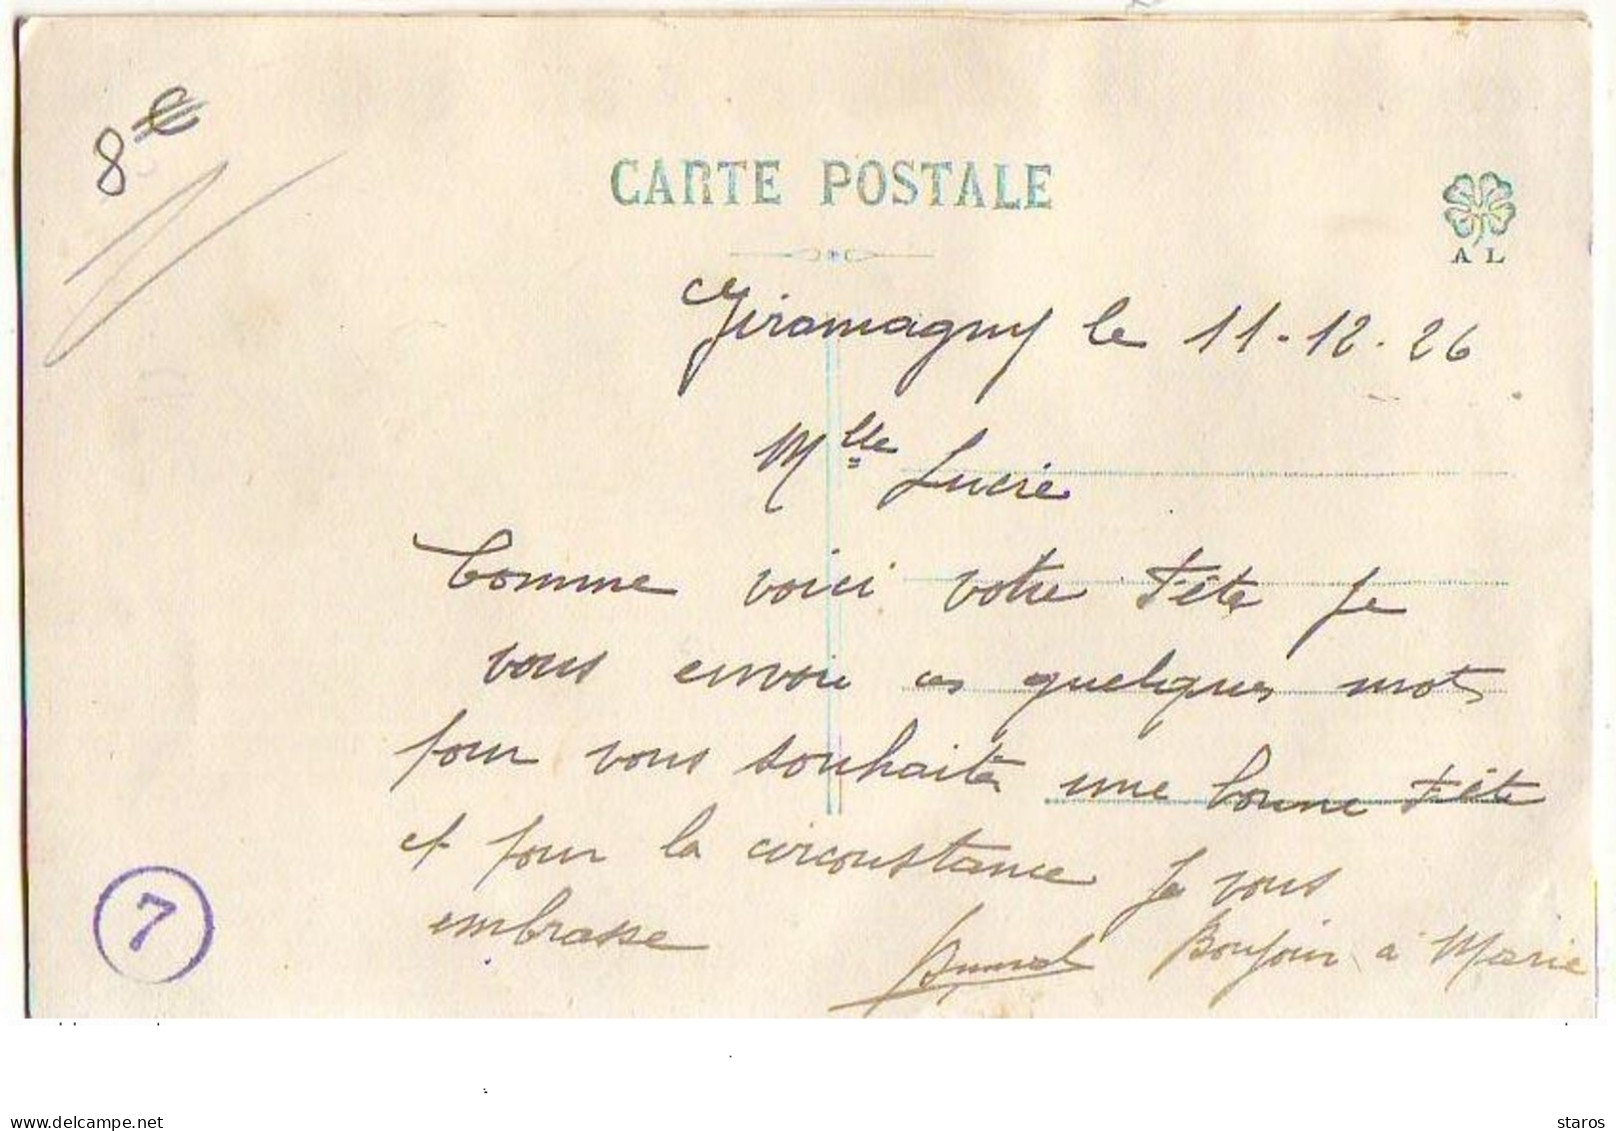 8€
CARTE POSTALE
A L
Giromagny le 11-12-26
Mlle Lucie
Comme voici votre Fête je
vous envoie ces quelques mots
pour vous souhaiter une bonne Fête
et pour la circonstance je vous
embrasse
Bonjour à Marie
7
www.delcampe.net
staros